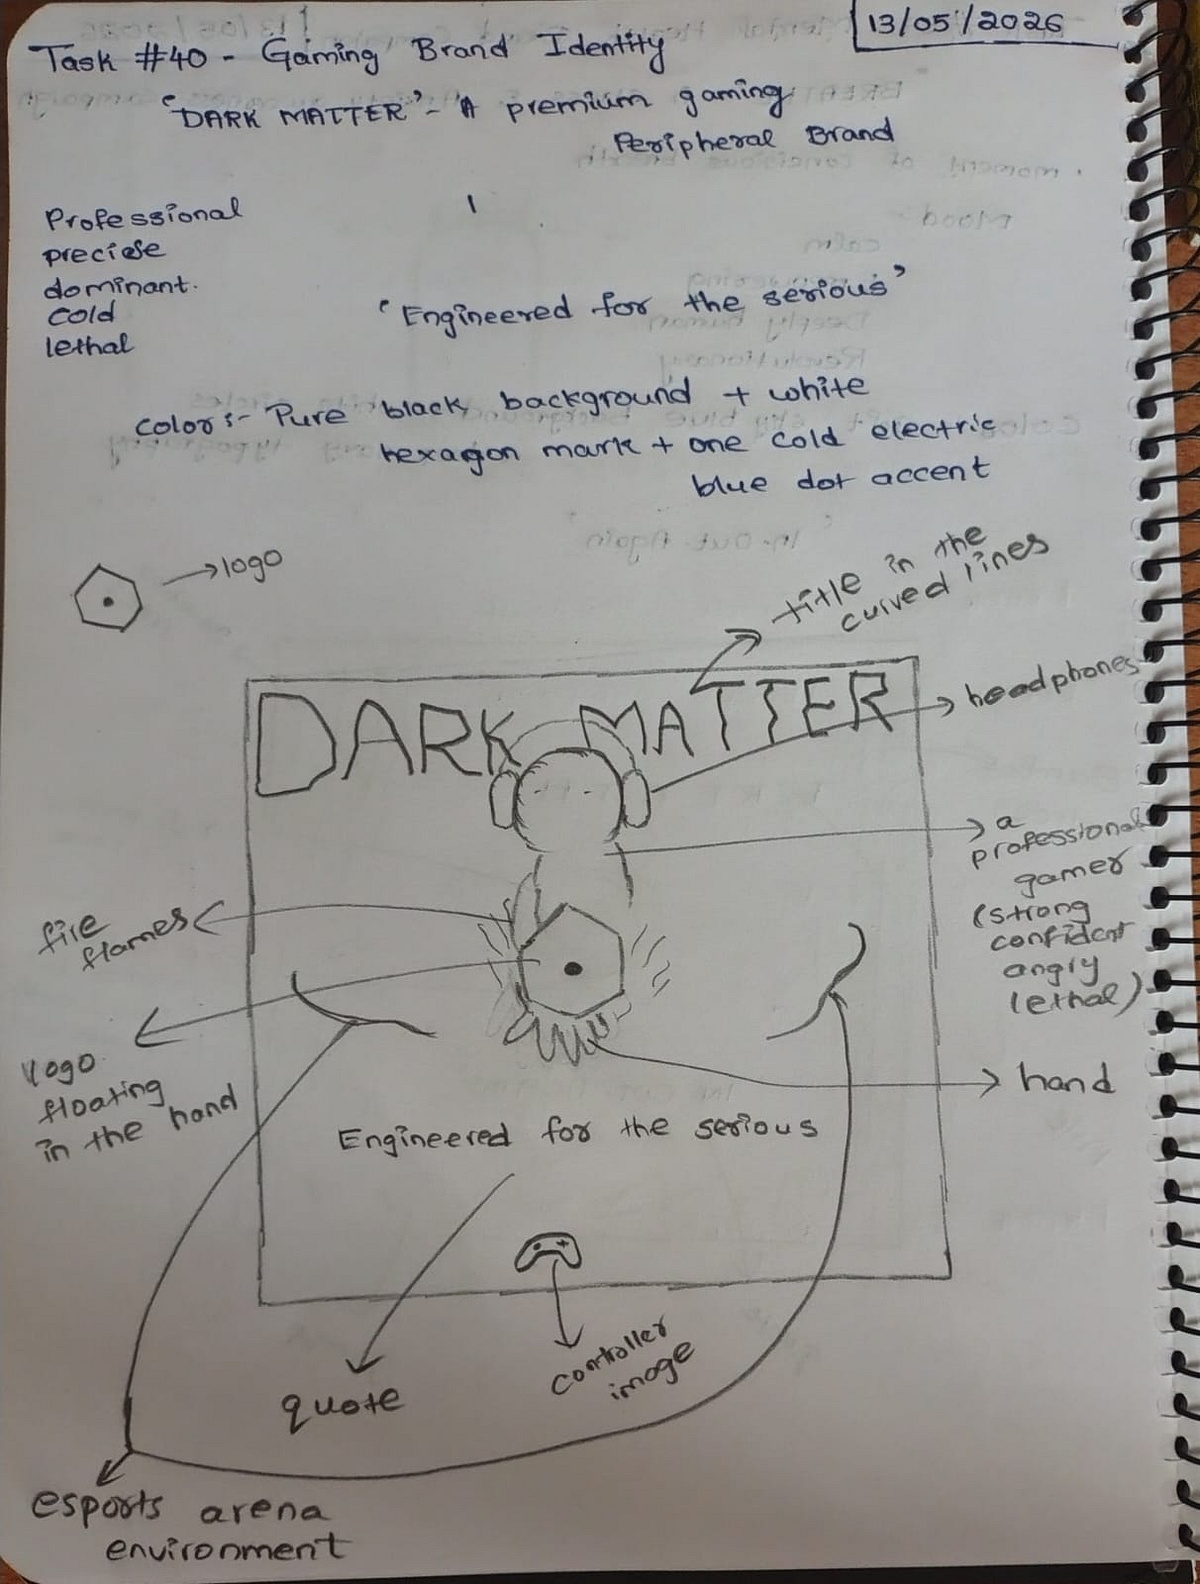 13/05/2026
Task #40 - Gaming Brand Identity
'DARK MATTER' - A premium gaming
Peripheral Brand
Professional
precise
dominant.
cold
lethal
'Engineered for the serious'
color :- Pure black background + white
hexagon mark + one cold electric
blue dot accent
logo
title in the
curved lines
DARK MATTER
headphones
a
professional
gamer
(strong
confident
angry
lethal)
fire
flames
logo
floating
in the hand
hand
Engineered for the serious
controller
image
quote
esports arena
environment